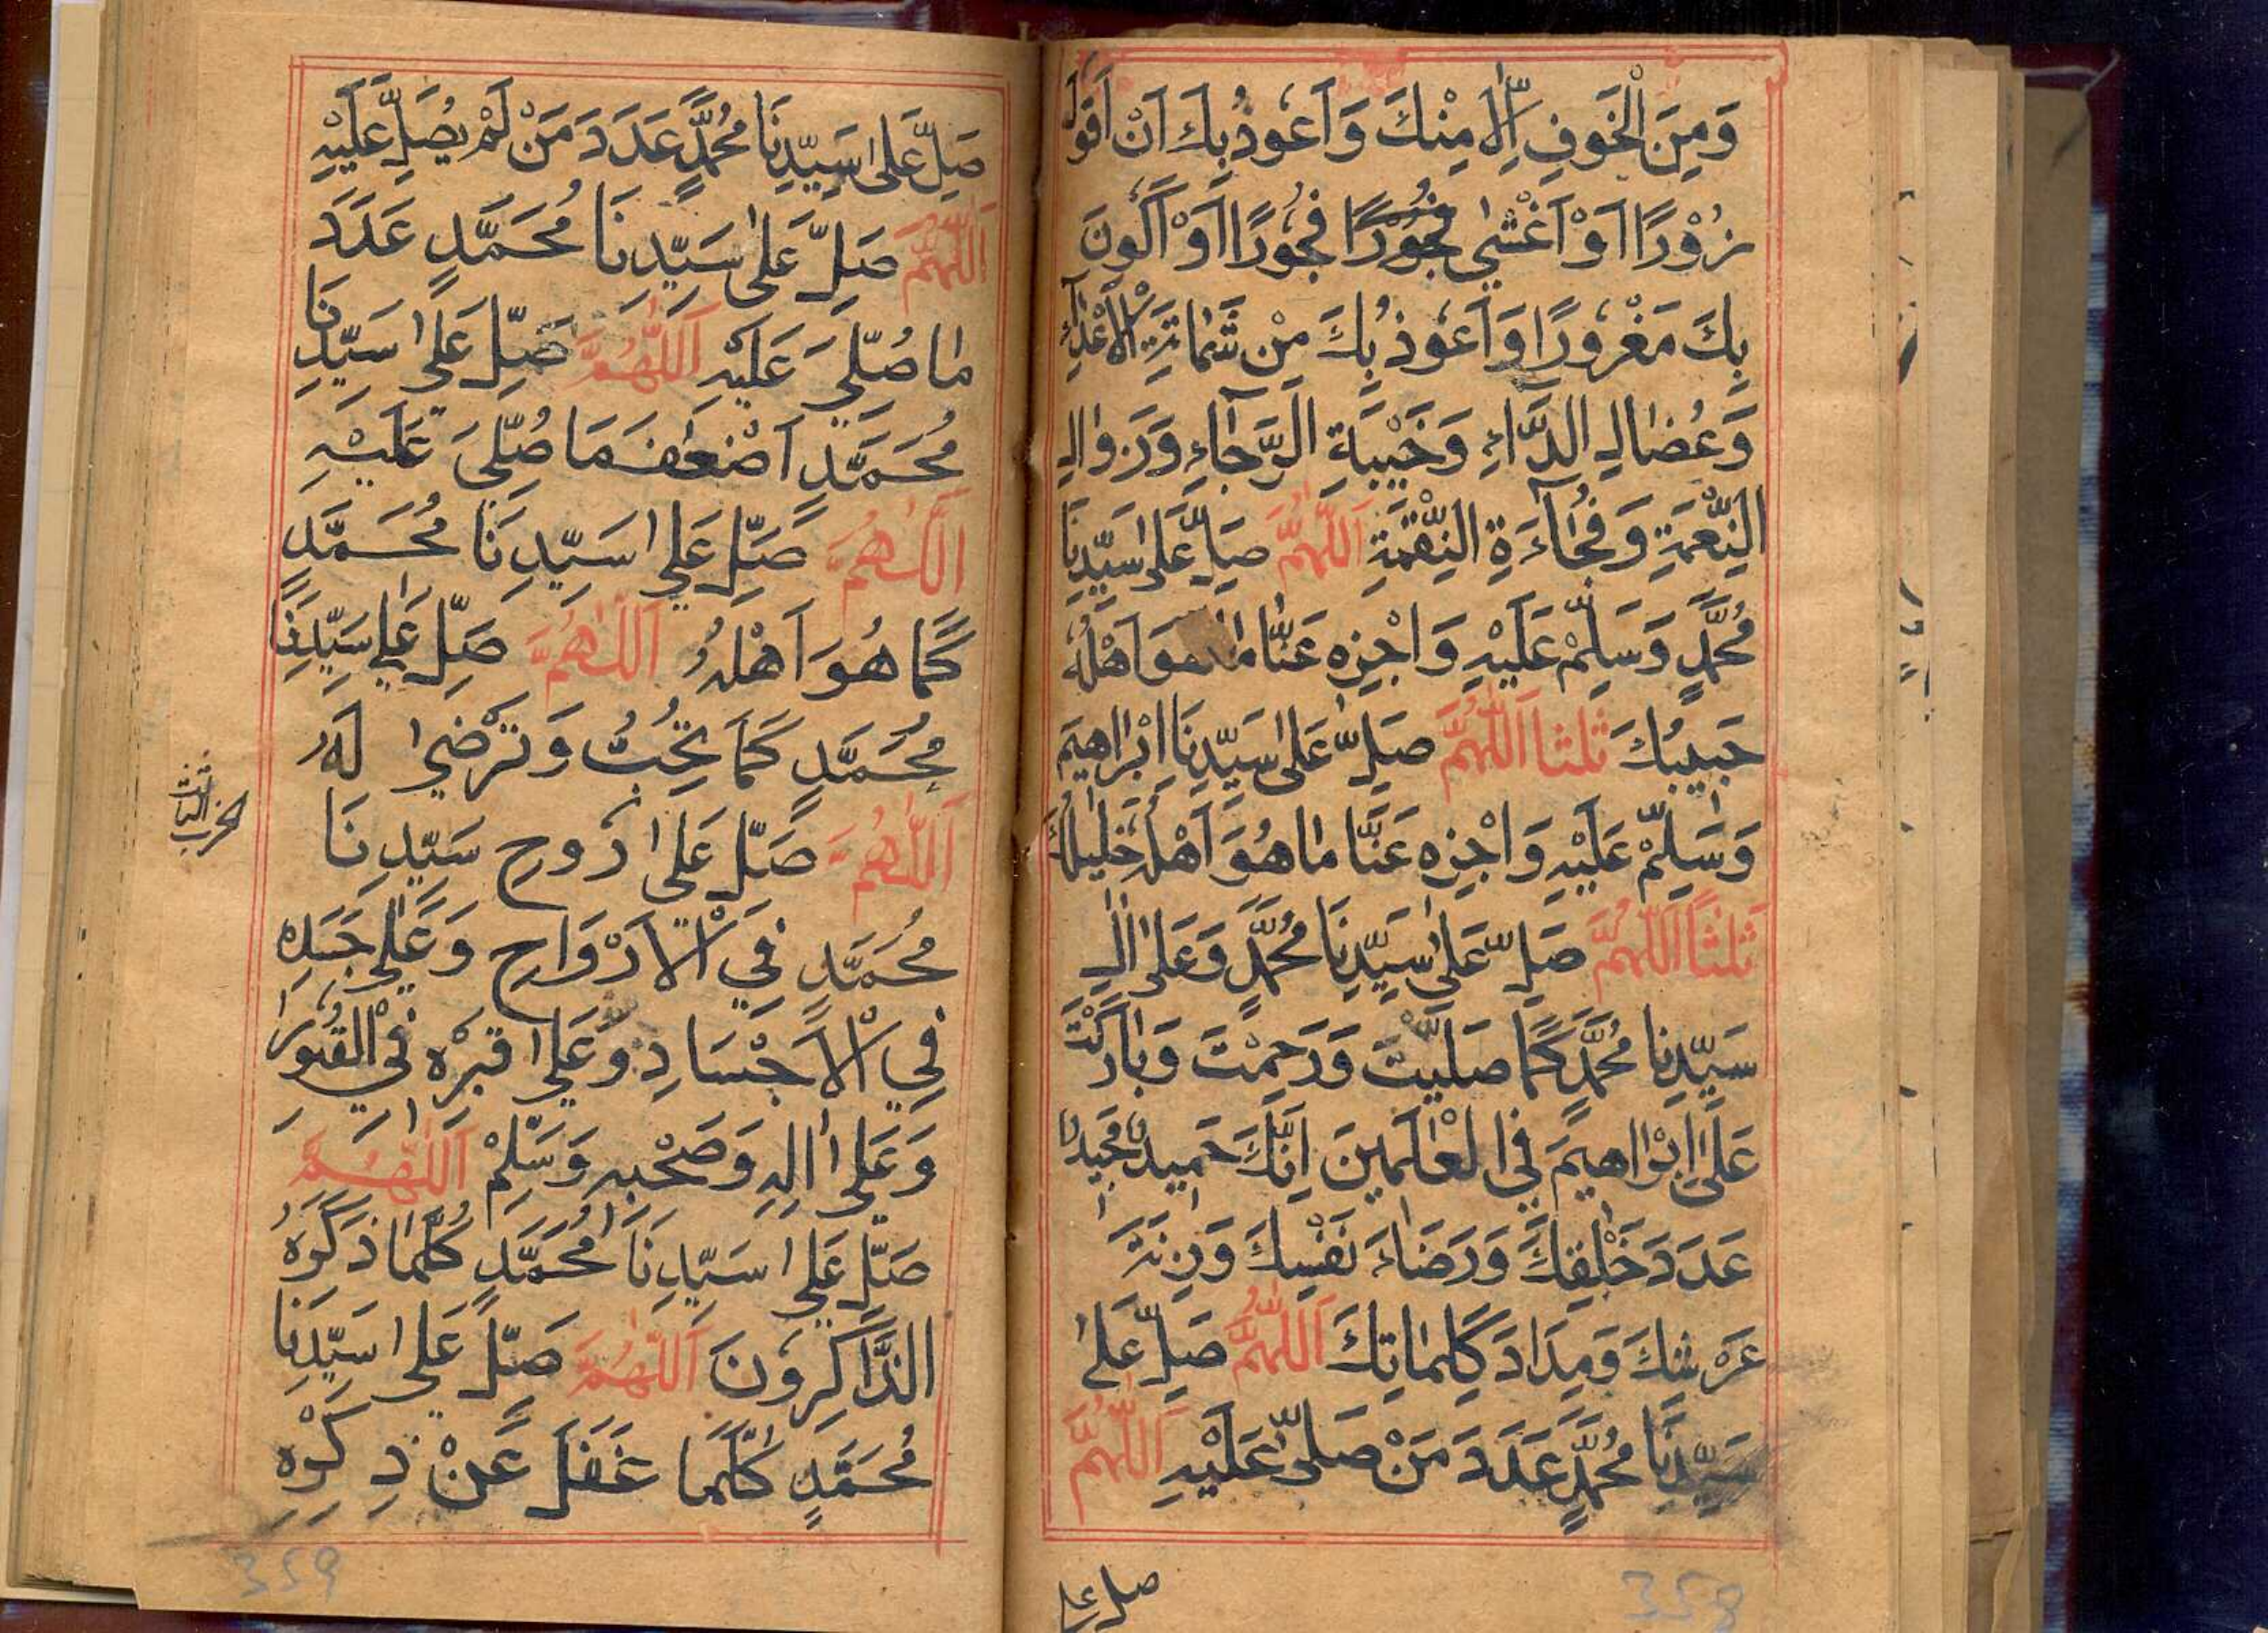 وَمِنَ الْخَوفِ اِلَّا مِنْكَ وَ اَعُوذُ بِكَ اَنْ اَقُولَ
زُوْرًا اَوْ اَغْشٰي فُجُوْرًا فُجُورًا اَوْ اَكُونَ
بِكَ مَغْرُورًا وَ اَعُوذُ بِكَ مِنْ شَمَاتَةِ الْاَعْدَآءِ
وَعُضَالِ الدَّآءِ وَخَيْبَةِ الرَّجَآءِ وَزَوَالِ
النِّعْمَةِ وَفُجَآءَةِ النِّقْمَةِ اَللّٰهُمَّ صَلِّ عَلٰى سَيِّدِنَا
مُحَمَّدٍ وَسَلِّمْ عَلَيْهِ وَاجْزِهِ عَنَّا مَا هُوَ اَهْلُهُ
حَبِيبُكَ ثلثا اَللّٰهُمَّ صَلِّ عَلٰى سَيِّدِنَا اِبْرَاهِيمَ
وَسَلِّمْ عَلَيْهِ وَاجْزِهِ عَنَّا مَا هُوَ اَهْلُهُ خَلِيلُكَ
ثَلٰثًا اَللّٰهُمَّ صَلِّ عَلٰى سَيِّدِنَا مُحَمَّدٍ وَعَلٰى اٰلِ
سَيِّدِنَا مُحَمَّدٍ كَمَا صَلَّيْتَ وَرَحِمْتَ وَبَارَكْتَ
عَلٰى اِبْرَاهِيمَ فِي الْعَالَمِينَ اِنَّكَ حَمِيدٌ مَجِيدٌ
عَدَدَ خَلْقِكَ وَرِضَاءَ نَفْسِكَ وَزِنَةَ
عَرْشِكَ وَمِدَادَ كَلِمَاتِكَ اَللّٰهُمَّ صَلِّ عَلٰى
سَيِّدِنَا مُحَمَّدٍ عَدَدَ مَنْ صَلّٰى عَلَيْهِ اَللّٰهُمَّ
صل علي
358
صَلِّ عَلٰى سَيِّدِنَا مُحَمَّدٍ عَدَدَ مَنْ لَمْ يُصَلِّ عَلَيْهِ
اَللّٰهُمَّ صَلِّ عَلٰى سَيِّدِنَا مُحَمَّدٍ عَدَدَ
مَا صُلِّيَ عَلَيْهِ اَللّٰهُمَّ صَلِّ عَلٰى سَيِّدِنَا
مُحَمَّدٍ اَضْعَافَ مَا صُلِّيَ عَلَيْهِ
اَللّٰهُمَّ صَلِّ عَلٰي سَيِّدِنَا مُحَمَّدٍ
كَمَا هُوَ اَهْلُهُ اَللّٰهُمَّ صَلِّ عَلٰي سَيِّدِنَا
مُحَمَّدٍ كَمَا تُحِبُّ وَتَرْضٰي لَهُ
اَللّٰهُمَّ صَلِّ عَلٰى رُوحِ سَيِّدِنَا
الحزب الثالث
مُحَمَّدٍ فِي الْاَرْوَاحِ وَعَلٰي جَسَدِهِ
فِي الْاَجْسَادِ وَعَلٰي قَبْرِهِ فِي الْقُبُورِ
وَعَلٰى اٰلِهِ وَصَحْبِهِ وَسَلِّمْ اَللّٰهُمَّ
صَلِّ عَلٰي سَيِّدِنَا مُحَمَّدٍ كُلَّمَا ذَكَرَهُ
الذَّاكِرُونَ اَللّٰهُمَّ صَلِّ عَلٰى سَيِّدِنَا
مُحَمَّدٍ كُلَّمَا غَفَلَ عَنْ ذِكْرِهِ
359